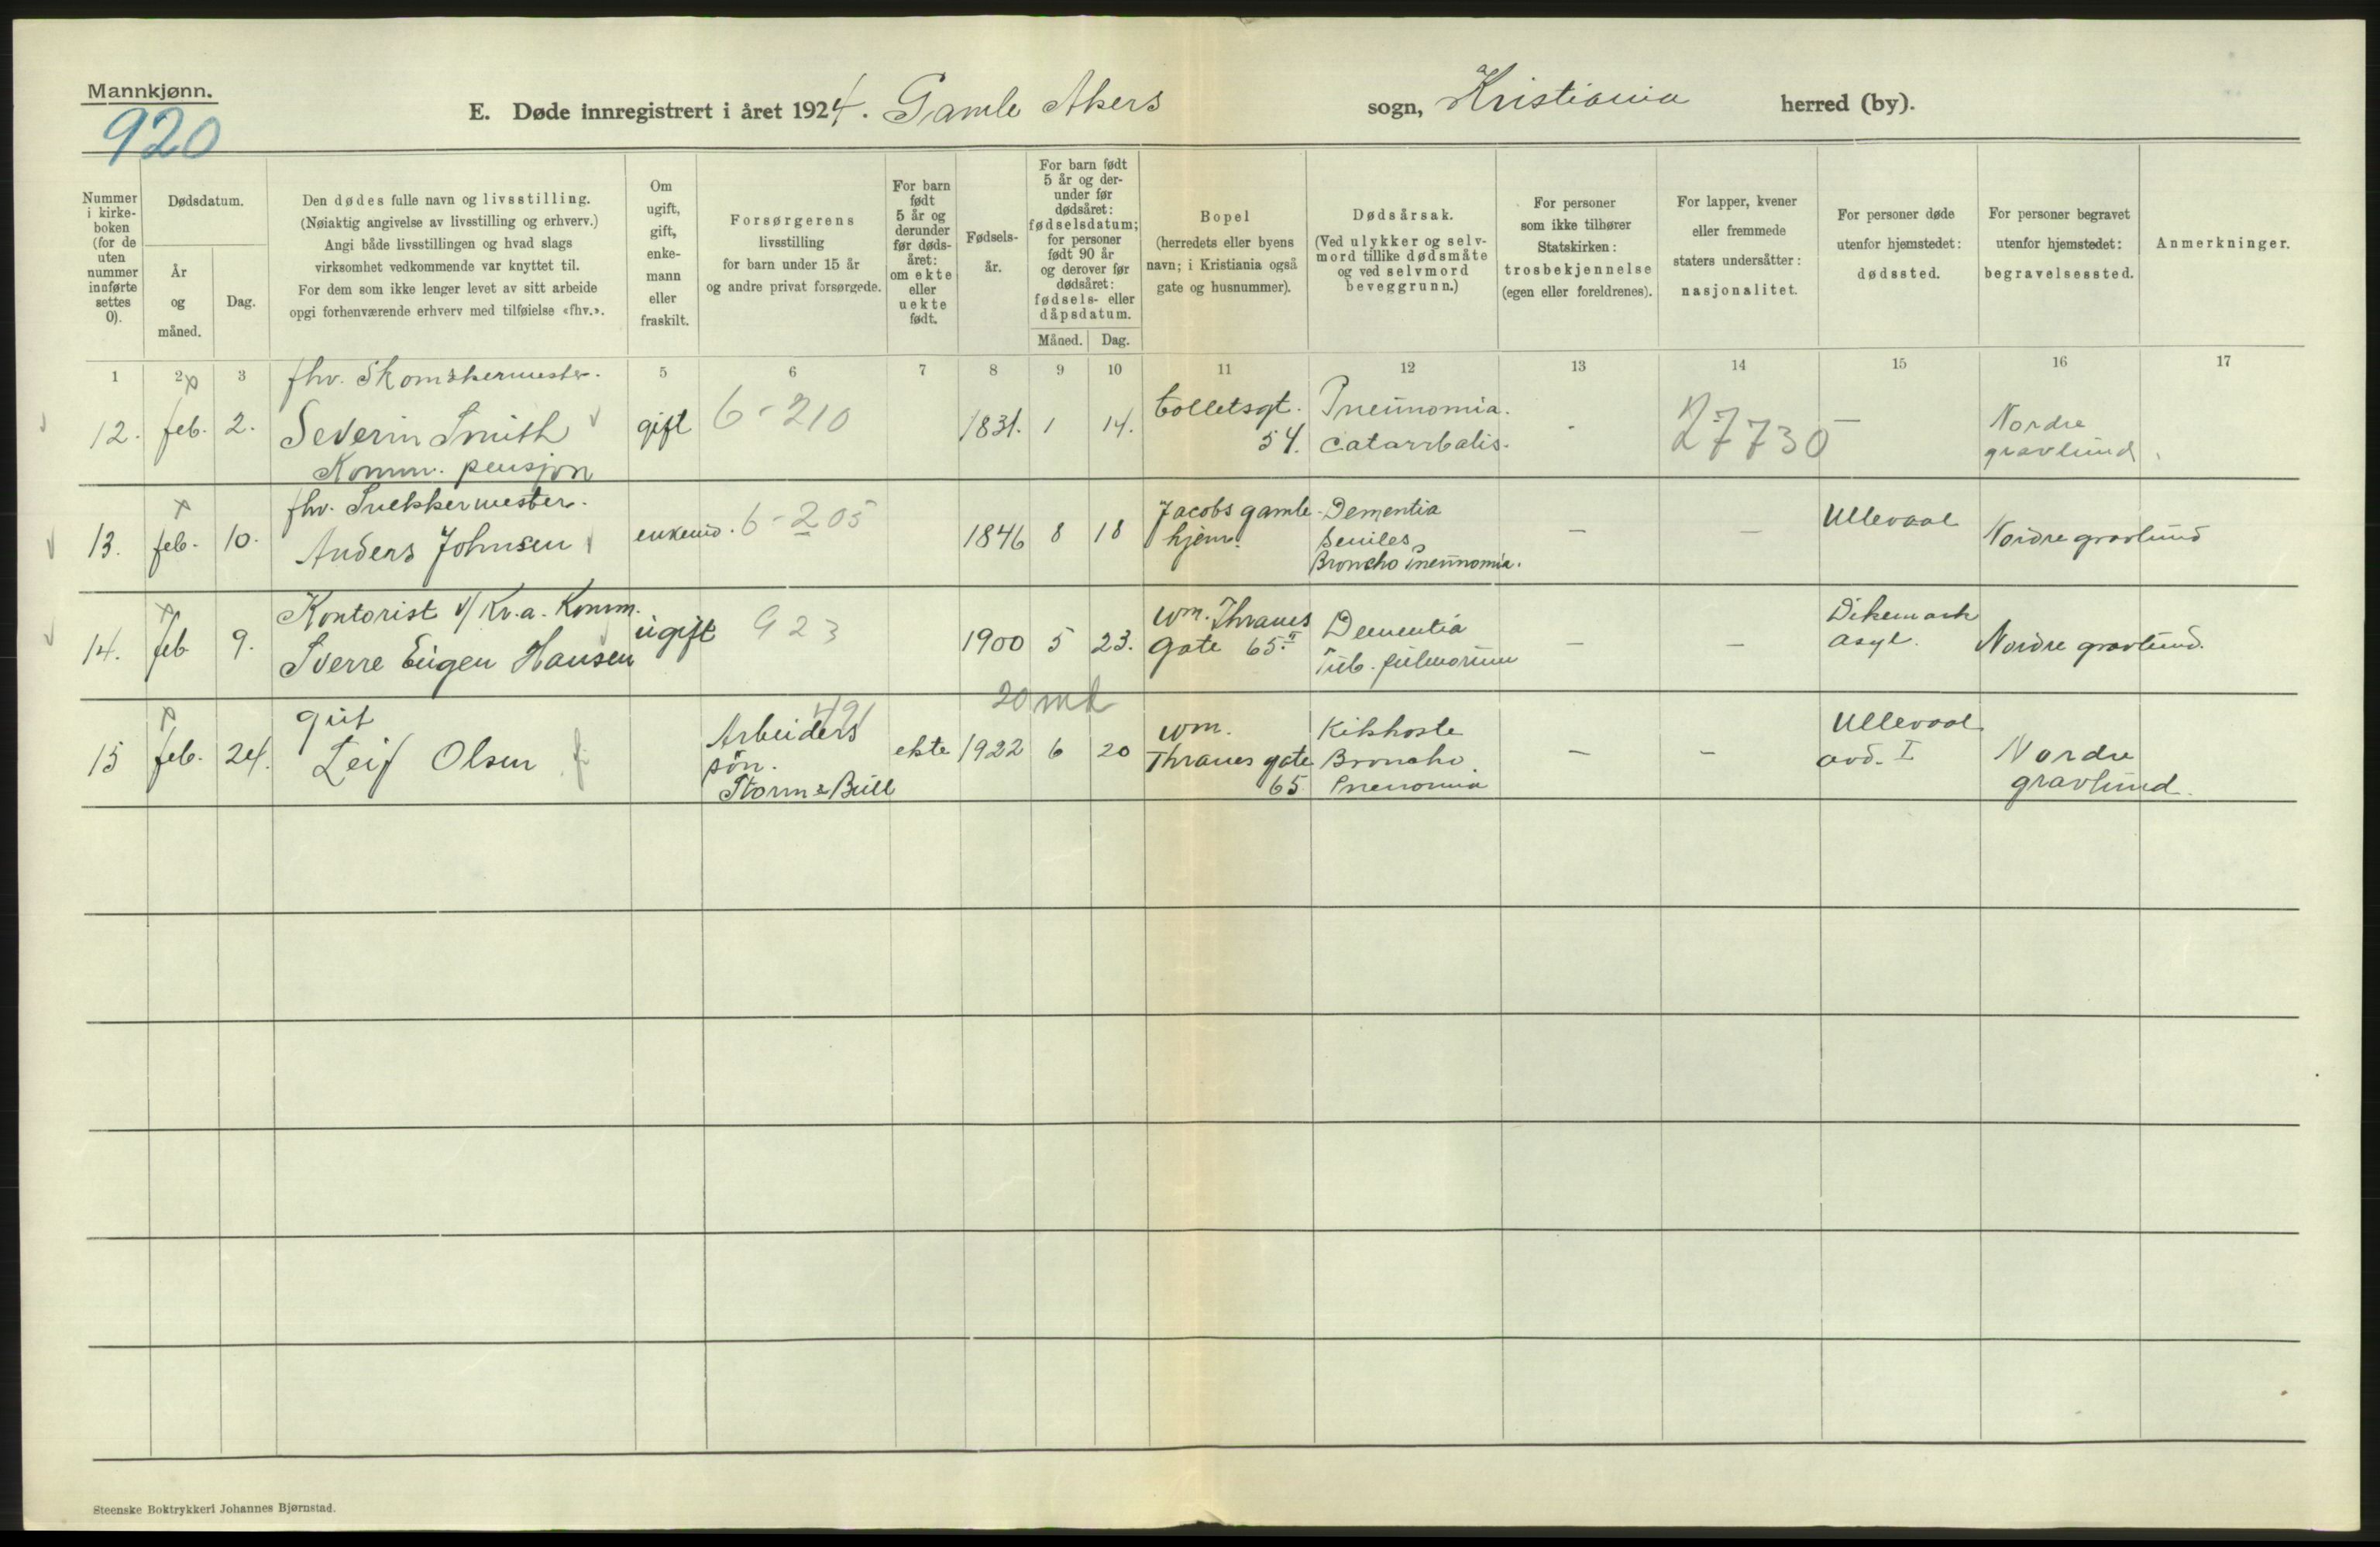 Mannkjønn.
920
E. Døde innregistrert i året 1924. Gamle Akers sogn, Kristiania herred (by).
Nummer i kirke-boken (for de uten nummer innførte settes 0).
Dødsdatum.
År og måned.
Dag.
Den dødes fulle navn og livsstilling.
(Nøiaktig angivelse av livsstilling og erhverv.)
Angi både livsstillingen og hvad slags
virksomhet vedkommende var knyttet til.
For dem som ikke lenger levet av sitt arbeide
opgi forhenværende erhverv med tilføielse «fhv.».
Om ugift, gift, enke-mann eller fraskilt.
Forsørgerens
livsstilling
for barn under 15 år
og andre privat forsørgede.
For barn født 5 år og derunder før døds-året: om ekte eller uekte født.
Fødsels-år.
For barn født 5 år og der-under før dødsåret: fødselsdatum; for personer født 90 år og derover før dødsåret: fødsels- eller dåpsdatum.
Måned. Dag.
Bopel
(herredets eller byens
navn; i Kristiania også
gate og husnummer).
Dødsårsak.
(Ved ulykker og selv-
mord tillike dødsmåte
og ved selvmord
beveggrunn.)
For personer
som ikke tilhører
Statskirken:
trosbekjennelse
(egen eller foreldrenes).
For lapper, kvener
eller fremmede
staters undersåtter:
nasjonalitet.
For personer døde
utenfor hjemstedet:
dødssted.
For personer begravet
utenfor hjemstedet:
begravelsessted.
Anmerkninger.
1 2 3 5 6 7 8 9 10 11 12 13 14 15 16 17
fhv. Skomakermester.
12. feb. 2. Severin Smith gift 6-210 1831. 1 14. Colletsgt. 54. Pneumomia. catarrhalis. - 27730 — Nordre gravlund
Komm. pensjon
fhv. Snekkermester.
13. feb. 10. Anders Johnsen enkemd. 6-205 1846 8 18 Jacobs gamle-hjem. Dementia Seniles Broncho Pneumomia. — — Ullevaal Nordre gravlund
Kontorist v/ Kr.a. Komm.
14. feb 9. Sverre Eugen Hansen ugift 923 1900 5 23. Wm. Thranes gate 65 II Dementia Tub. pulmorum — — Dikemark asyl. Nordre gravlund.
20 md
gut
15 feb. 24. Leif Olsen Arbeiders sön. Storm & Bull 491 ekte 1922 6 20 Wm. Thranes gate 65 Kikhoste Broncho Pnenomia — — Ullevaal avd. I Nordre gravlund.
Steenske Boktrykkeri Johannes Bjørnstad.